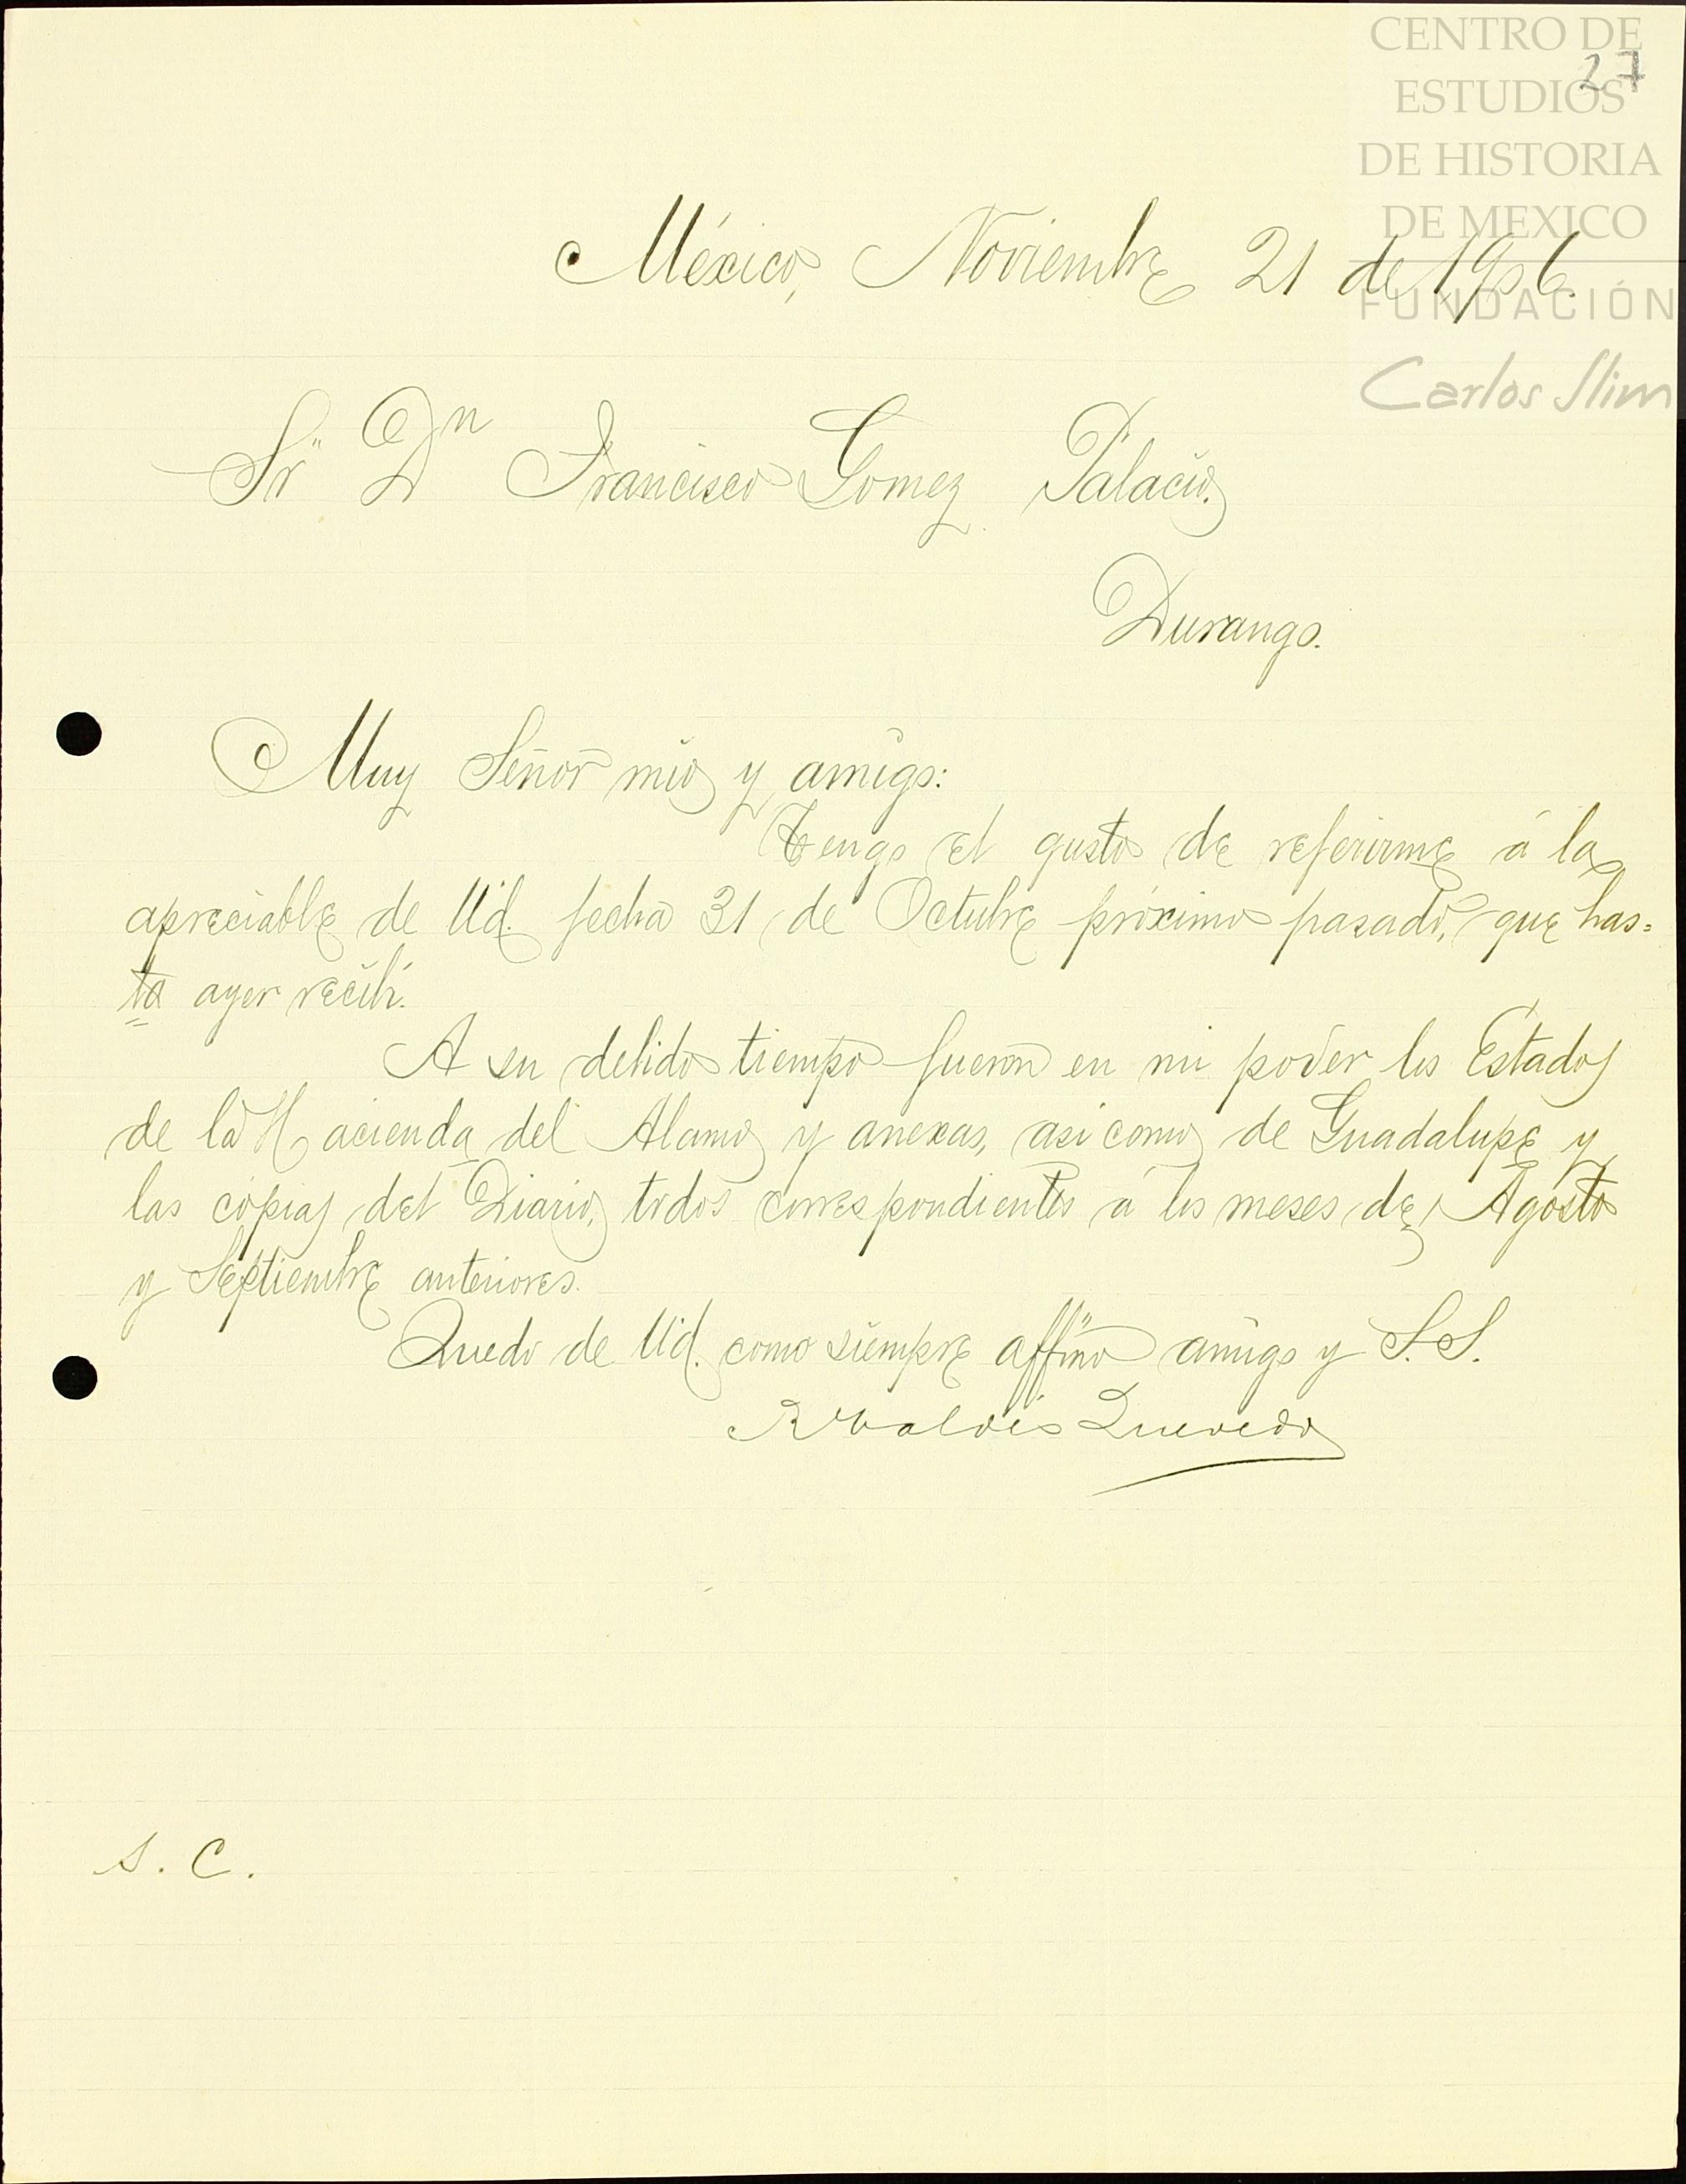 CENTRO DE
ESTUDIOS
DE HISTORIA
DE MEXICO
FUNDACIÓN
Carlos Slim
27
México, Noviembre 21 de 1906.
Sr. Dn Francisco Gomez Palacio.
Durango.
Muy Señor mio y amigo:
Tengo el gusto de referirme á la
apreciable de Ud. fecha 31 de Octubre próximo pasado, que has=
ta ayer recibí.
A su debido tiempo fueron en mi poder los Estados
de la Hacienda del Alamo y anexas, asi como de Guadalupe y
las copias del Diario, todos correspondientes á los meses de Agosto
y Septiembre anteriores.
Quedo de Ud. como siempre affmo amigo y S. S.
R Valdés Quevedo
S. C.